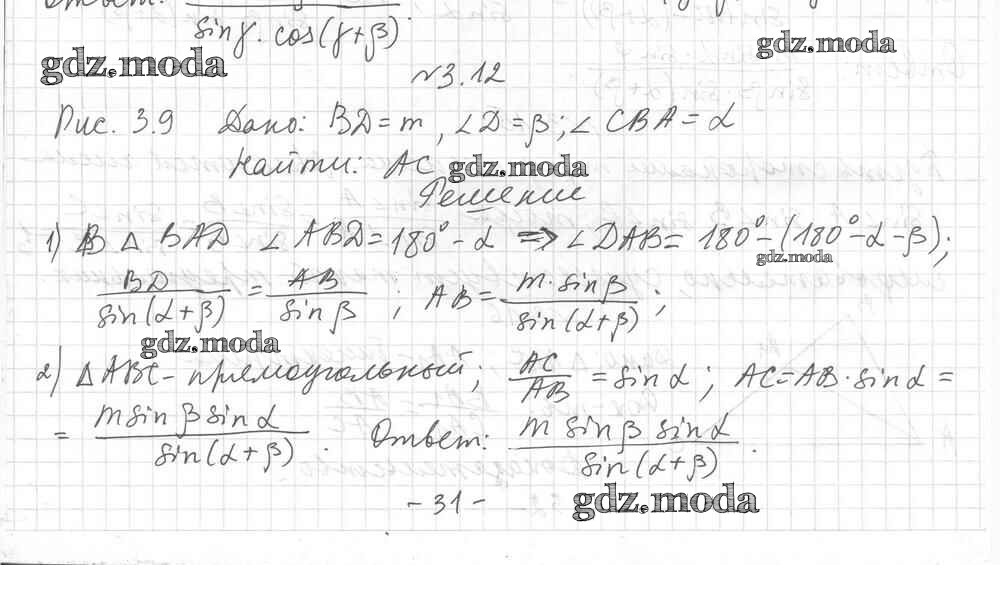 sinγ · cos(γ+β).
gdz.moda
gdz.moda
№3.12
Рис. 3.9 Дано: BD = m, ∠D = β; ∠CBA = α
Найти: AC gdz.moda
Решение
1) В △ BAD ∠ABD = 180° - α => ∠DAB = 180° - (180° - α - β);
gdz.moda
BD / sin(α+β) = AB / sin β ; AB = m · sin β / sin(α+β) ;
gdz.moda
2) △ABC - прямоугольный; AC / AB = sin α ; AC = AB · sin α =
= m sin β sin α / sin(α+β) . Ответ: m sin β sin α / sin(α+β) .
- 31 -
gdz.moda